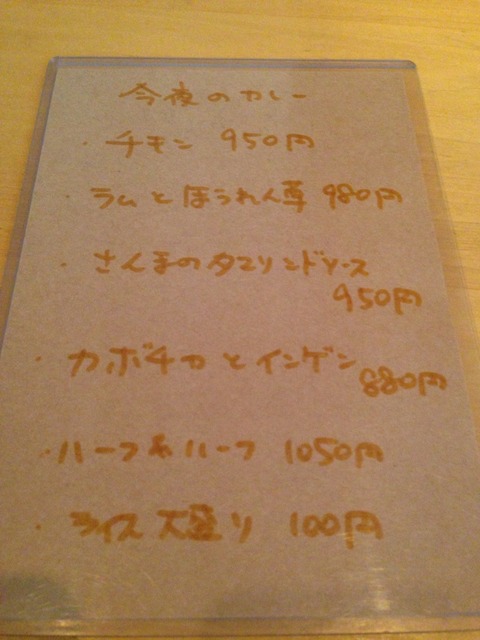 今夜のカレー
・チキン 950円
・ラムとほうれん草 980円
・さんまのタマリンドソース
950円
・カボチャとインゲン 880円
・ハーフ&ハーフ 1050円
・ライス大盛り 100円